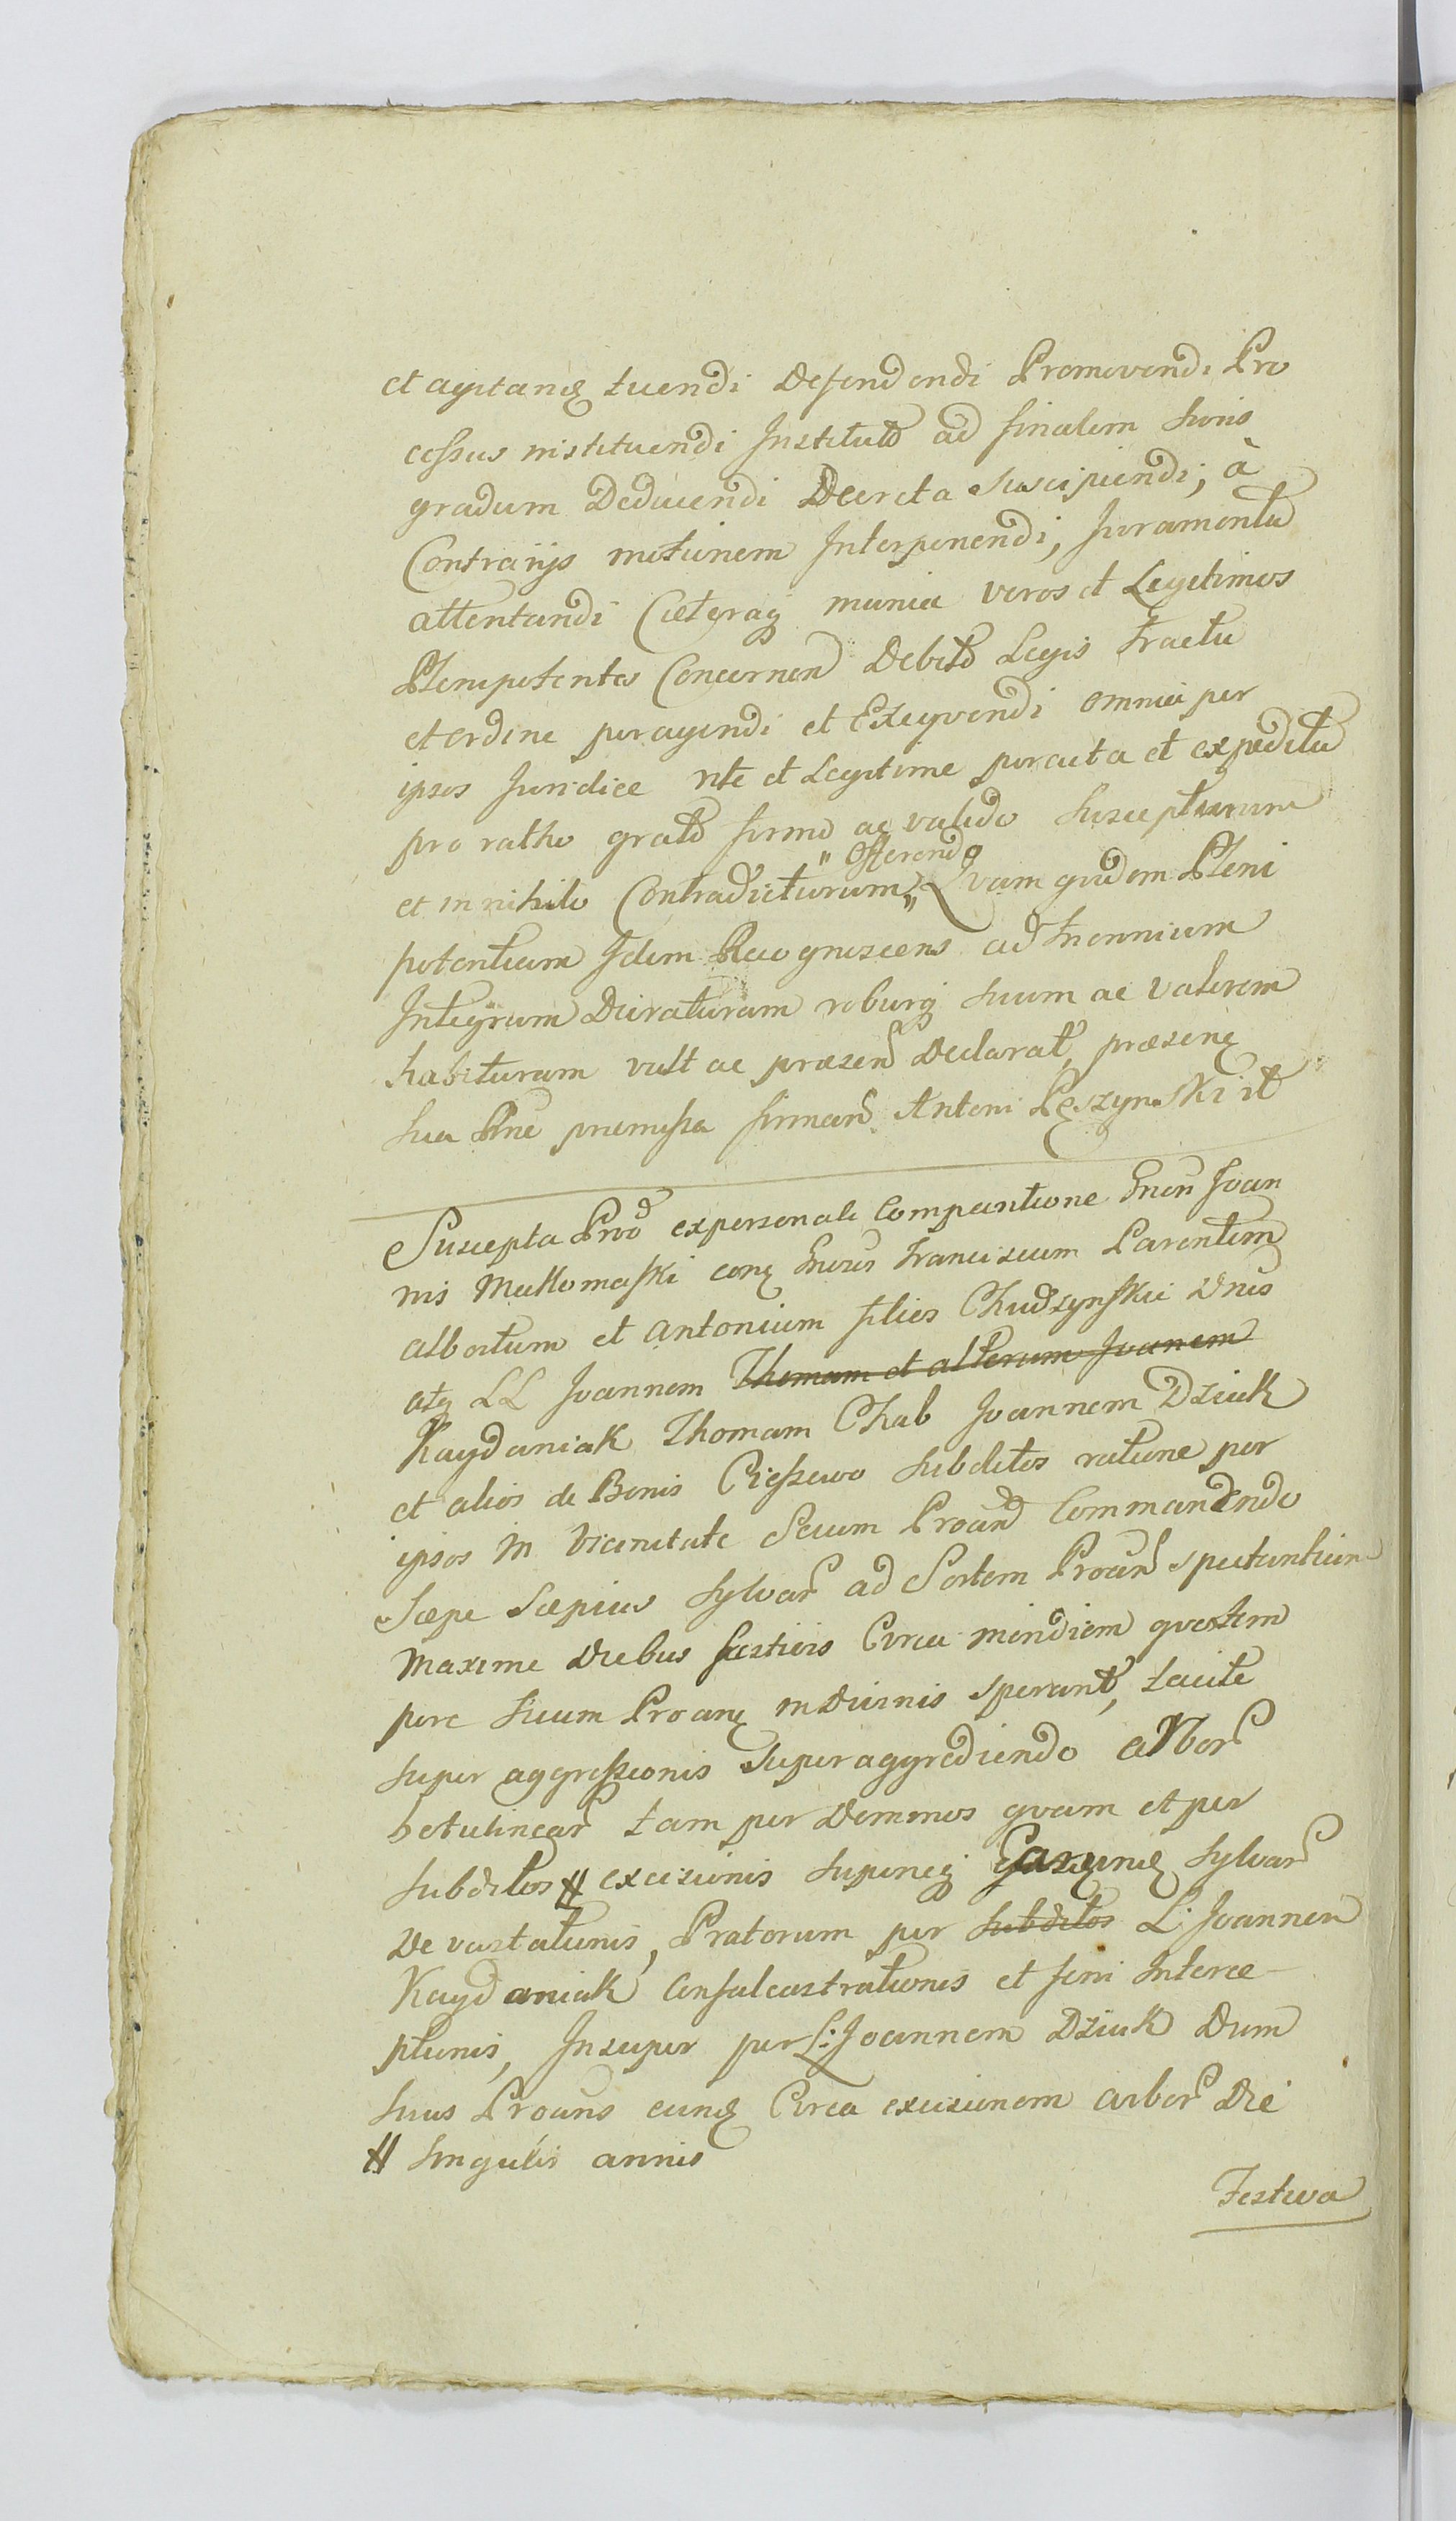 et agitanꝫ tuendi Defendendi Promovendi Pro
cessus instituendi Institutō ad finalem Iuris
gradum Deducendi Decreta Suscipiendi, à
Contrarijs motionem Interponendi, Iuramenta
attentandi Cæteraqꝫ munia veros et Legitimos
Plenipotentes Concernen Debitō Legis Tractu
et ordine peragendi et Exeqvendi omnia per
ipsos Iuridice rite et Legitime peracta et expedita
pro ratho gratō firmō ac valido Suscepturum
" Offerendo
et in nihilo Contradicturum " Qvam qvidem Pleni
potentiam Idem Recognoscens ad Triennium
Integrum Duraturam roburqꝫ suum ac Valorem
habituram vult ac præsen Declarat, præsenꝫ
sua Pne præmissa firman. Antoni Pęszynski rt
Suscepta Proō ex personali Comparitione Gnen Joan
nis Makomaski conꝫ Gnosos Franciscum Parentem
Albertum et Antonium filios Chudzynskie Dnos
atqꝫ LL Joannem Thomam et alterum Joanem
Kaydaniak Thomam Chab Joannem Dziuk
et alios de Bonis Cieszewo Subditos ratione per
ipsos in Vicinitate Secum Proand Commanendo
Sæpe Sæpius Sylvar ad Sortem Proan spectantium
maxime Diebus festivis Circa meridiem qvo tem
pore suum Proanꝫ in Divinis sperant, tacite
super aggressionis Superaggrediendo arbor
betulinear tam per Dominos qvam et per
subditos # excisionis superiqꝫ sylvar
Devastationis, Pratorum per subditos L. Joannem
Kaydaniak Confalcastrationis et feni Interce-
ptionis, Insuper per L: Joannem Dziuk Dum
suus Proans eunꝫ Circa excisionem arbor Die
# singulis annis
Festiva